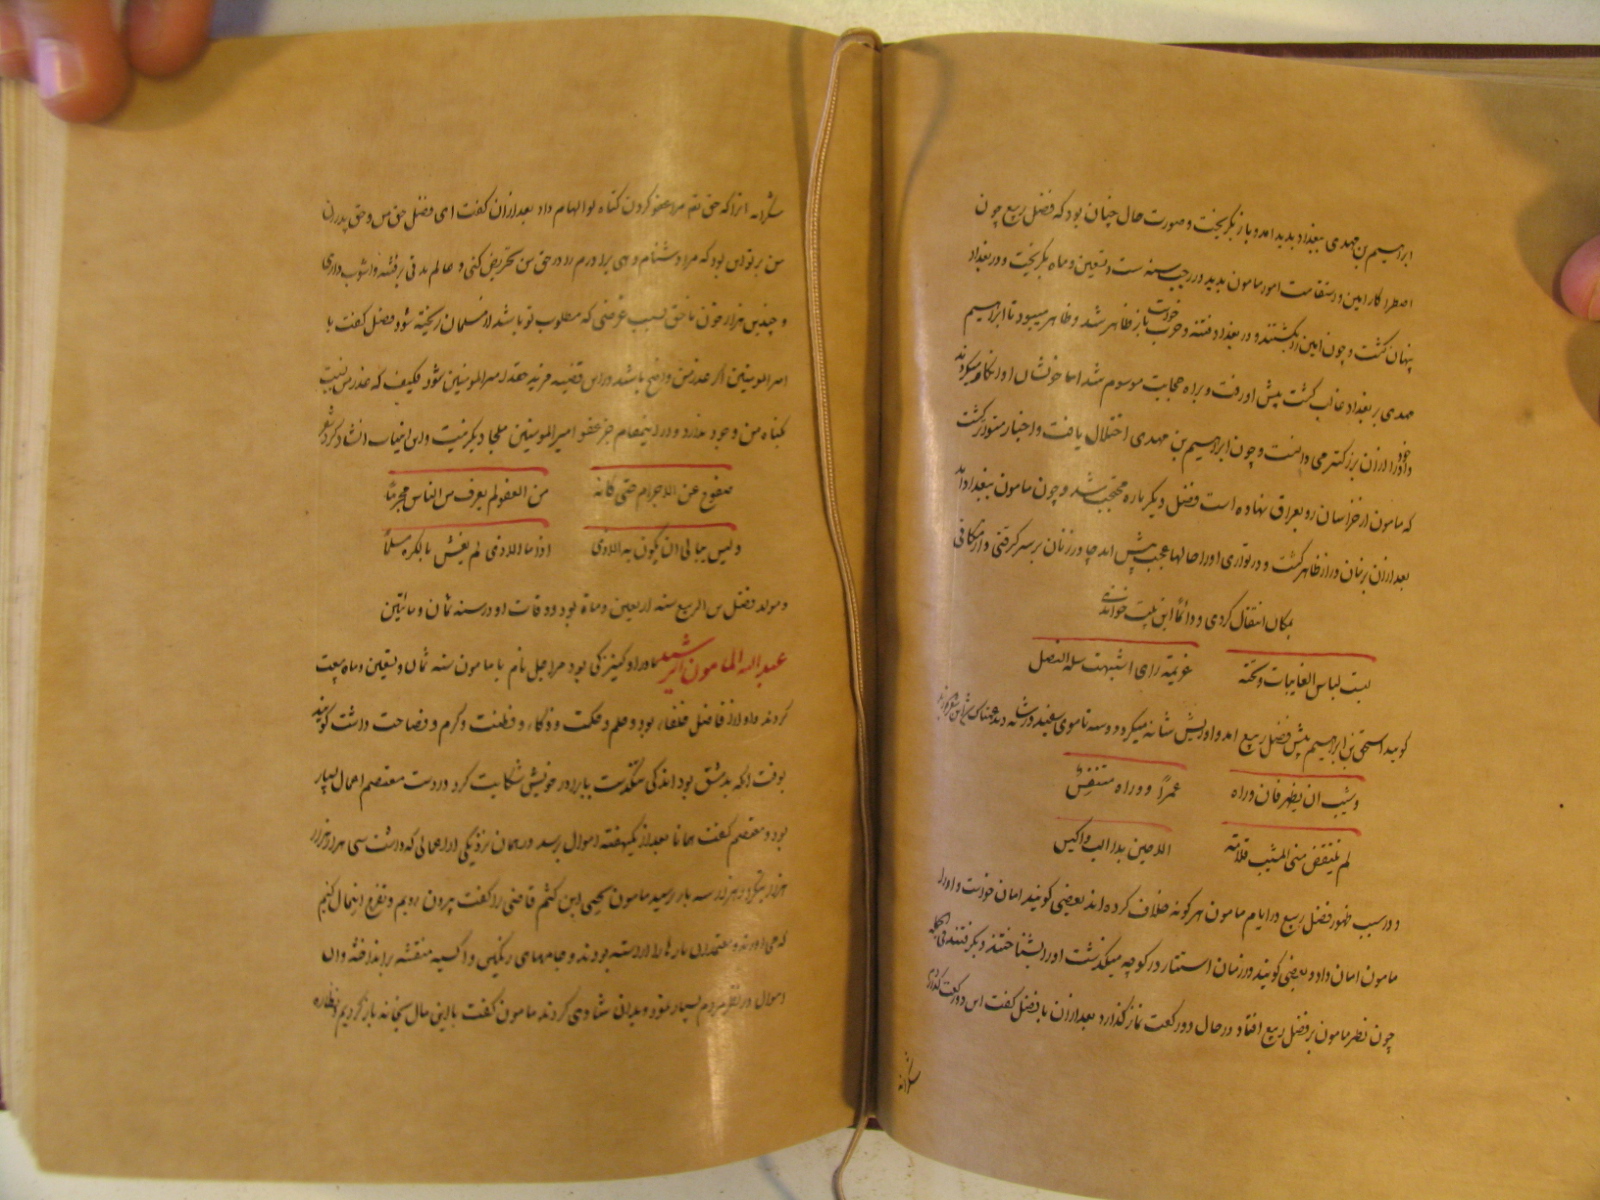 ابراهیم بن مهدی ببغداد پدید امد و باز بگریخت و صورت حال چنان بود که فضل ربیع چون
اضطراب کار امین و استقامت امور مامون بدید در رجب سنه ست و تسعین و مایه بگریخت و در بغداد
پنهان گشت و چون امین را بکشتند و در بغداد فتنه و حرب خواست باز ظاهر شد و ظاهر میبود تا ابراهیم
مهدی بر بغداد غالب گشت پیش او رفت و براه حجابت موسوم شد اما خویشتن او
خود را از ان بزرگتر می دانست و چون ابراهیم بن مهدی اختلال یافت و اخبار متواتر گشت
که مامون از خراسان رو بعراق نهاده است فضل دیگر باره محتجب شد و چون مامون ببغداد امد
بعد از ان بزمان دراز ظاهر گشت و در تواری او را حالها عجب پیش امد چادر زنان بر سر گرفتی و از مکانی
بمکان انتقال کردی و دائما این بیت خواندی
لبست لباس الغانیات وتحته
عزیمة رای اشبهت سلة النصل
گویند اسحق بن ابراهیم پیش فضل ربیع امد و او ریش شانه میکرد دو سه تا موی سفید در شانه دید
وشیب ان یظهر فان وراه
عمرا ووراه متنفس
لم ینتقص منی المشیب قلامة
اللحین بدا الب واکیس
و در سبب ظهور فضل ربیع در ایام مامون هر گونه خلاف کرده اند بعضی گویند امان خواست و او را
مامون امان داد و بعضی گویند در زمان استتار در کوچه میگذشت او را بشناختند و بگرفتند
چون نظر مامون بر فضل ربیع افتاد در حال دو رکعت نماز گذارد بعد از ان با فضل گفت این دو رکعت گذاردم
شکرانه
شکرانه انرا که حق تع مرا عفو کردن گناه تو الهام داد بعد از ان گفت ای فضل حق من و حق پدران
من بر تو این بود که مرا دشنام دهی و برادرم را در حق من تحریض کنی و عالم بدین
و چندین هزار خون ناحق بسبب غرضی که مطلوب تو باشد از مسلمان ریخته شود فضل گفت یا
امیر المومنین اگر عذر من واضح باشد در این قضیه مزید حقد امیر المومنین شود فکیف که عذر من نیست
گناه من وجود ندارد و در این مقام جز عفو امیر المومنین ملجا دیگر نیست و این ابیات انشاد کرد شعر
صفوح عن الاجرام حتی کانه
من العفو لم یعرف من الناس مجرما
ولیس یبالی ان یکون به الاذی
اذا ما الاذی لم یغش بالکره مسلما
و مولد فضل بن الربیع سنه اربعین و ماة بود و وفات او در سنه ثمان و مائتین
عبد الله المامون الرشید مادر او کنیزکی بود مراجل نام با مامون سنه ثمان و تسعین و ماه بیعت
کردند و او از افاضل خلفاء بود و علم و حکمت و ذکاء و فطنت و کرم و فصاحت داشت گویند
بوقت انکه بدمشق بود اندکی تنگدست با برادر خویش شکایت کرد در دست معتصم اعمال بسیار
بود معتصم گفت همانا بعد از یکهفته اموال برسد در همان نزدیکی از اعمالی که داشت سی هزار هزار
رسید مامون یحیی ابن اکثم قاضی را گفت بیرون رویم و تفرج اینمال کنیم
که می اورند و معتمدان بارها را اراسته بودند و جامهای رنگین و اکسیه منقشه بر ان انداخته و ان
اموال در نظر مردم بسیار نمود و بدان شادی کردند مامون گفت با این مال بخانه باز گردیم و نظاره